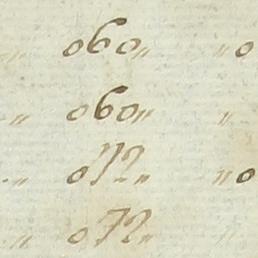 „ 060„ „0
„ 060„ „
„ 072„ „0
„ 072„ „